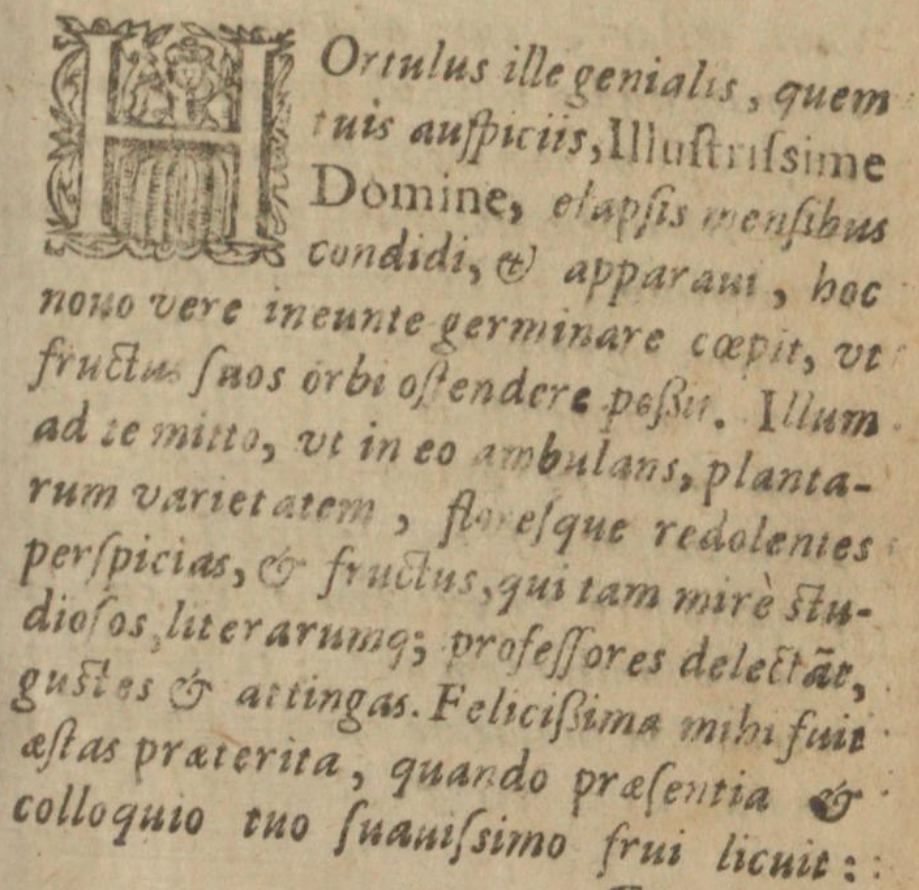 HOrtulus ille genialis, quem
tuis auſpiciis, Illuſtriſsime
Domine, elapſis menſibus
condidi, & apparaui, hoc
nouo vere ineunte germinare cœpit, vt
fructus ſuos orbi oſtendere poßit. Illum
ad te mitto, vt in eo ambulans, planta-
rum varietatem, floreſque redolentes
perſpicias, & fructus, qui tam mirè ſtu-
dioſos, literarumq; profeſſores delectāt,
guſtes & attingas. Feliciſßima mihi fuit
æſtas præterita, quando præſentia &
colloquio tuo ſuauiſsimo frui licuit: